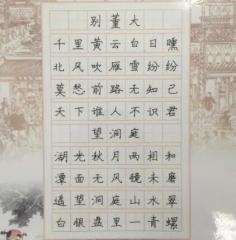 别董大
千里黄云白日曛
北风吹雁雪纷纷
莫愁前路无知己
天下谁人不识君
望洞庭
湖光秋月两相和
潭面无风镜未磨
遥望洞庭山水翠
白银盘里一青螺